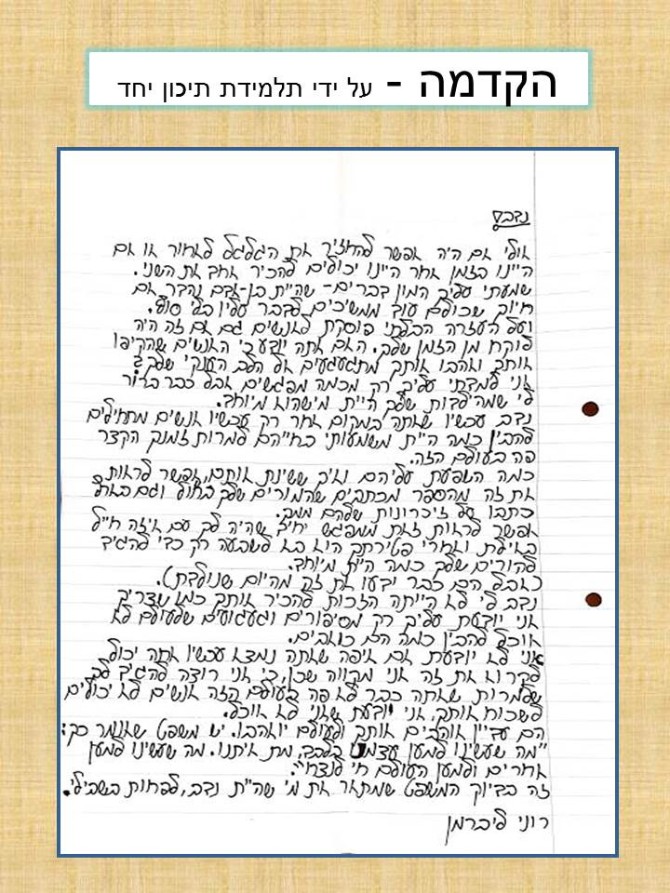 הקדמה - על ידי תלמידת תיכון יחד
נדב,
אולי אם היה אפשר להחזיר את הגלגל לאחור או אם
היינו בזמן אחר היינו יכולים להכיר אחד את השני.
שמעתי עליך המון דברים - שהיית בן-אדם נהדר עם
חיוך שכולם עוד ממשיכים לדבר עליו בלי סוף.
ועל העזרה הבלתי פוסקת לאנשים גם אם זה היה
לוקח מן הזמן שלך. האם אתה יודע כי האנשים שהקיפו
אותך ואהבו אותך מתגעגעים אל הלב הענקי שלך?
אני למדתי עליך רק מכמה מפגשים אבל כבר ברור
לי שמהילדות שלך היית מישהו מיוחד.
נדב עכשיו שאתה במקום אחר רק עכשיו אנשים מתחילים
להבין כמה היית משמעותי בחייהם למרות זמנך הקצר
פה בעולם הזה.
כמה השפעת עליהם ואיך ששינית אותם, אפשר לראות
את זה מהספר מכתבים שההורים שלך בחול וגם בארץ
כתבו על זיכרונות שלהם ממך.
אפשר לראות זאת ממפגש יחיד שהיה לך עם איזה חייל
באילת ואחרי פטירתך הוא בא לשבעה רק כדי להגיד
להורים שלך כמה היית מיוחד.
(אבל הם כבר ידעו את זה מהיום שנולדת).
נדב לי לא הייתה הזכות להכיר אותך כמו שצריך
אני יודעת עליך רק מסיפורים וגעגועים שלעולם לא
אוכל להבין כמה הם כואבים.
אני לא יודעת אם איפה שאתה נמצא עכשיו אתה יכול
לקרוא את זה אני מקווה שכן, כי אני רוצה להגיד לך
שלמרות שאתה כבר לא פה בעולם הזה אנשים לא יכולים
לשכוח אותך, אני יודעת שאני לא אוכל.
הם עדיין אוהבים אותך ולעולם יאהבו. יש משפט שאומר כך:
"מה שעשינו למען עצמנו בלבד, מת איתנו. מה שעשינו למען
אחרים ולמען העולם חי לנצח".
זה בדיוק המשפט שמתאר את מי שהיית נדב, לפחות בשבילי.
רוני ליברמן